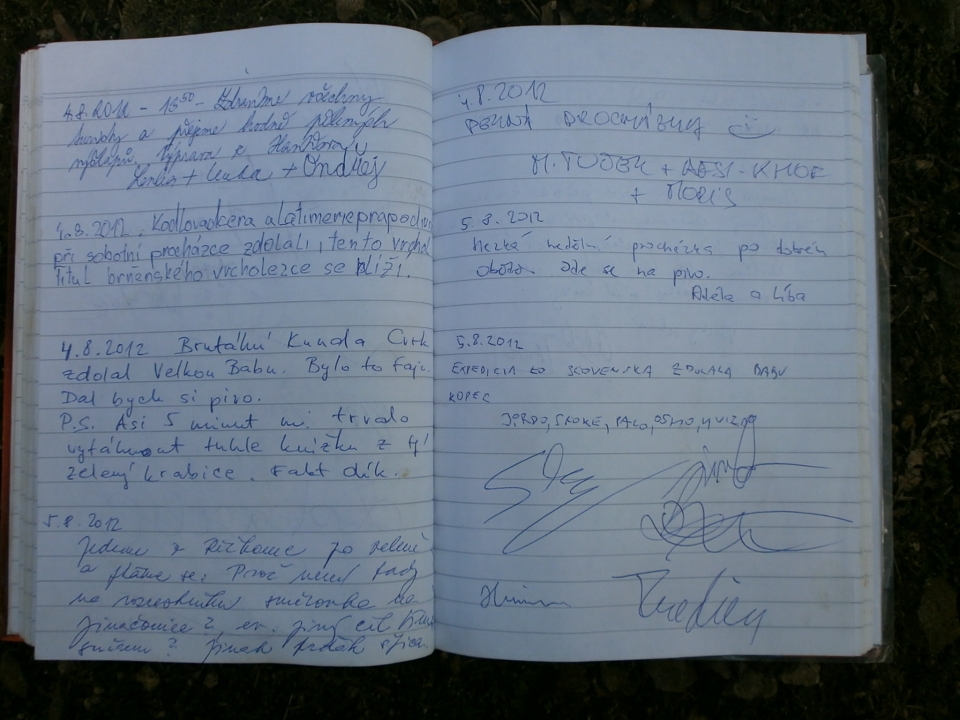 4.8.2012 - 15⁵⁰ - Zdravíme všechny
a přejeme hodně pěkných
výšlapů. Výprava z
Lenka + + Ondřej
4.8.2012. Kodlovaokcera a Latimerieprapodivn
při sobotní procházce zdolali, tento vrchol
titul brněnského vrcholezce se blíží.
4.8.2012 Brutální Kunda Cvrk
zdolal Velkou Babu. Bylo to fajn.
Dal bych si pivo.
P.S. Asi 5 minut mi trvalo
vytáhnout tuhle knížku z tý
zelený krabice. Fakt dík.
5.8.2012
Jedeme z po zelené
a ptáme se: Proč není tady
na rozcestníku směrovka na
Jinačovice? ev. jiný cíl
směrem? Jinak
4.8.2012
PĚKNÁ PROCHÁZKA
M. TUČEK +
+ MORIS
5.8.2012
Hezká nedělní procházka po dobrém
obědě. Jde se na pivo.
Adéla a Líba
5.8.2012
EXPEDICIA ZO SLOVENSKA ZDOLALA BABU
KOPEC